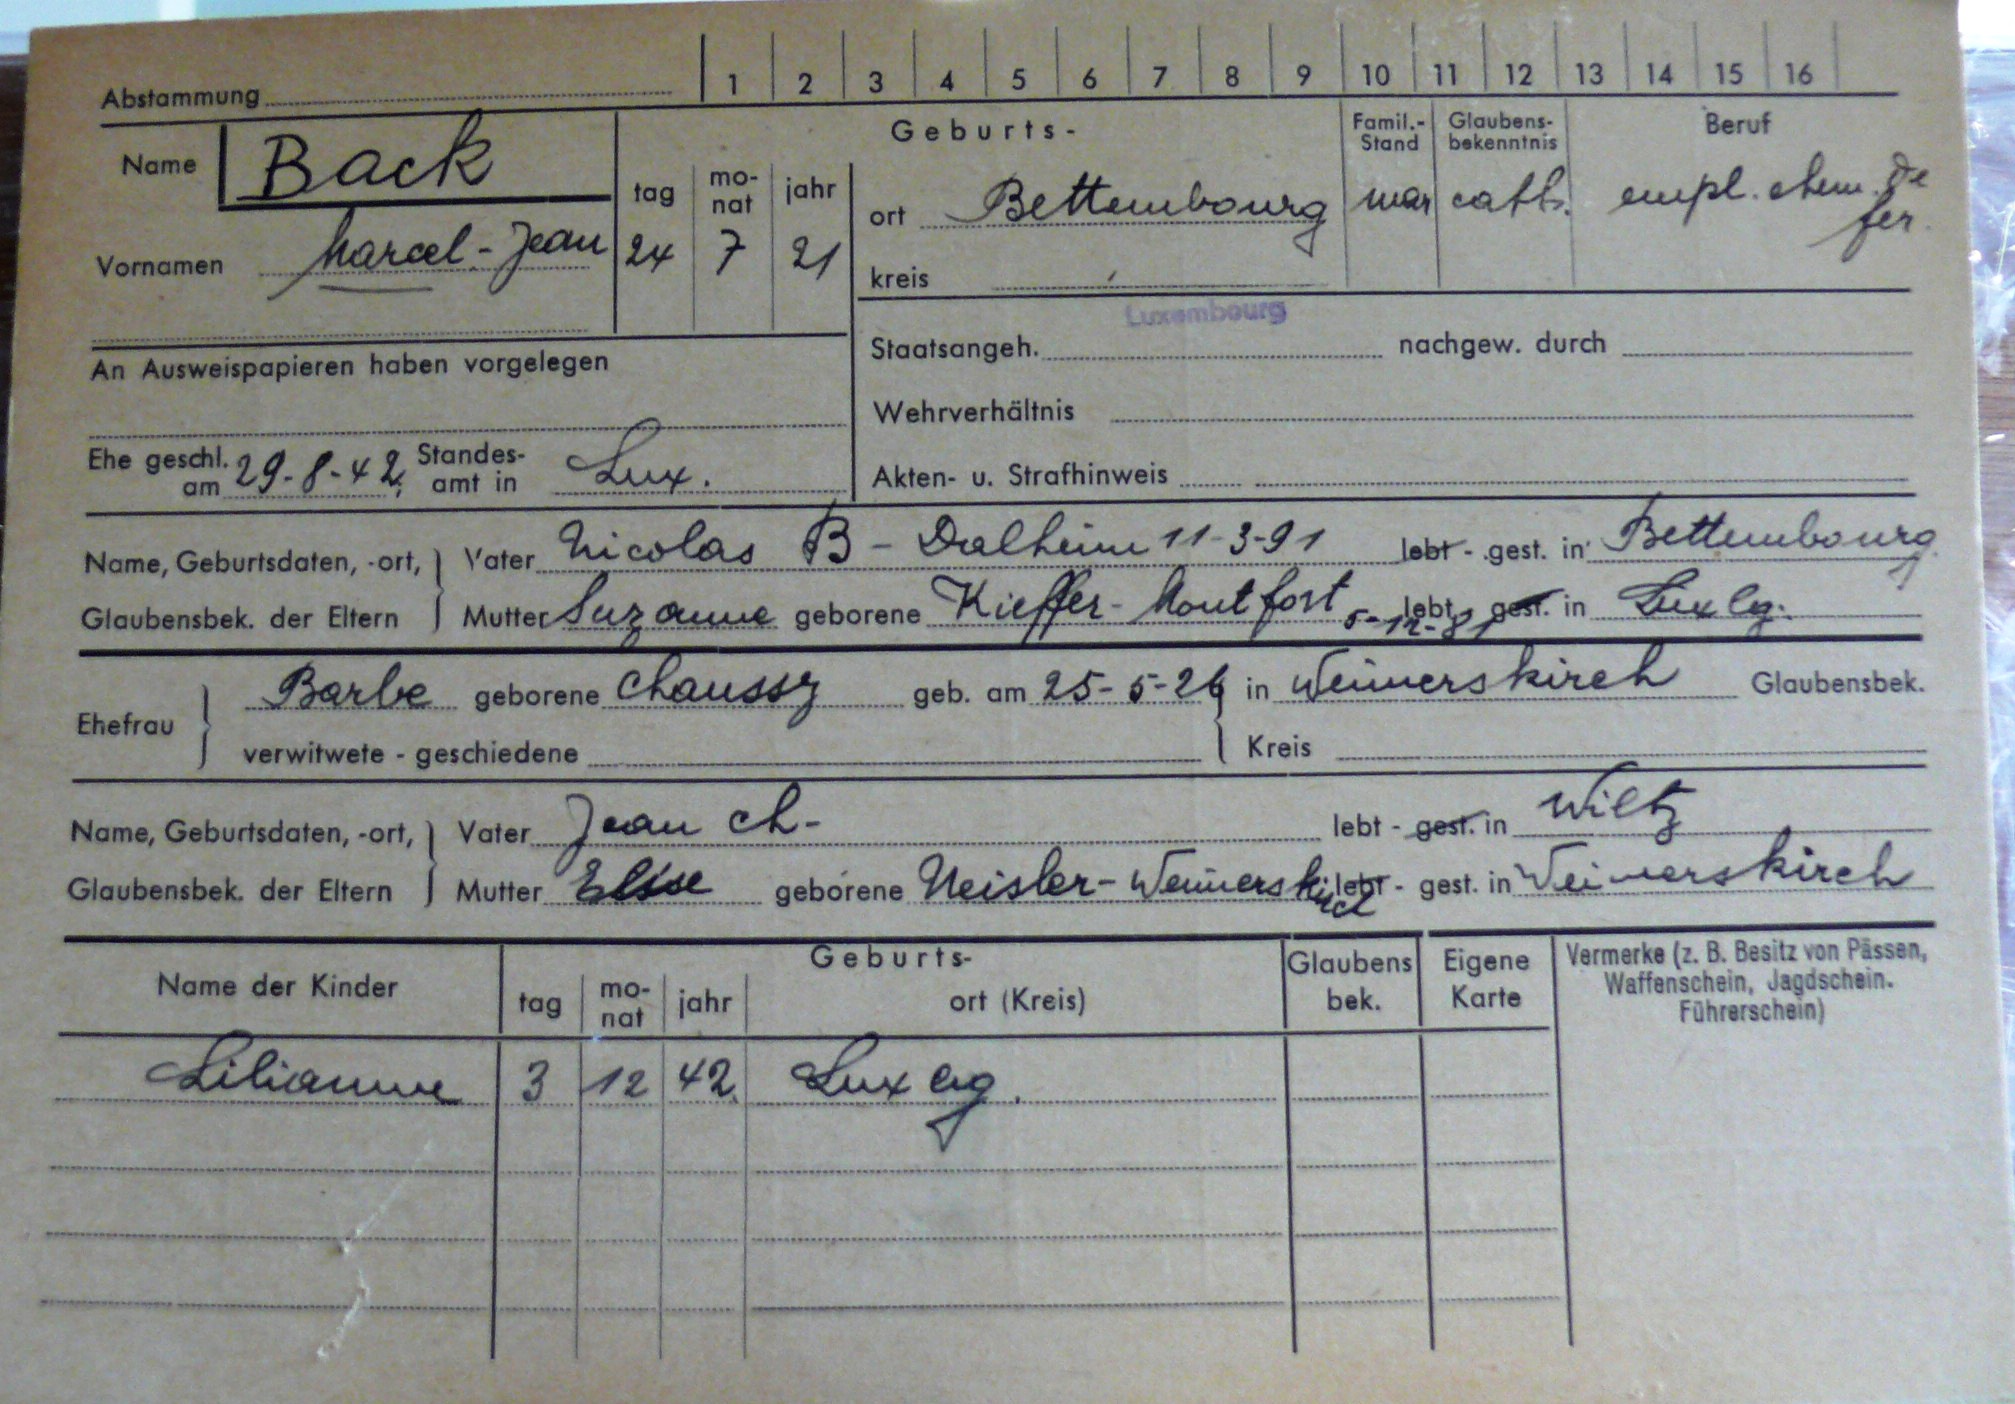 Abstammung 1 2 3 4 5 6 7 8 9 10 11 12 13 14 15 16
Name Back
Vornamen Marcel-Jean
Geburts-
tag mo-nat jahr
24 7 21
ort Bettembourg
kreis
Famil.-Stand
mar
Glaubens-bekenntnis
cath.
Beruf
empl. chem. de fer.
Luxembourg
Staatsangeh. nachgew. durch
Wehrverhältnis
Akten- u. Strafhinweis
An Ausweispapieren haben vorgelegen
Ehe geschl. am 29-8-42 Standes-amt in Lux.
Name, Geburtsdaten, -ort, Vater Nicolas B - Dalheim 11-3-91 lebt - gest. in Bettembourg
Glaubensbek. der Eltern Mutter Suzanne geborene Kieffer - Moutfort 5-12-81 lebt gest. in Luxbg.
Ehefrau Barbe geborene Chaussy geb. am 25-5-26 in Weimerskirch Glaubensbek.
verwitwete - geschiedene Kreis
Name, Geburtsdaten, -ort, Vater Jean Ch- lebt - gest. in Wiltz
Glaubensbek. der Eltern Mutter Elise geborene Neisler - Weimerskirch lebt - gest. in Weimerskirch
Name der Kinder
Geburts-
tag mo-nat jahr ort (Kreis)
Glaubens bek.
Eigene Karte
Vermerke (z. B. Besitz von Pässen,
Waffenschein, Jagdschein.
Führerschein)
Lilianne 3 12 42 Luxbg.